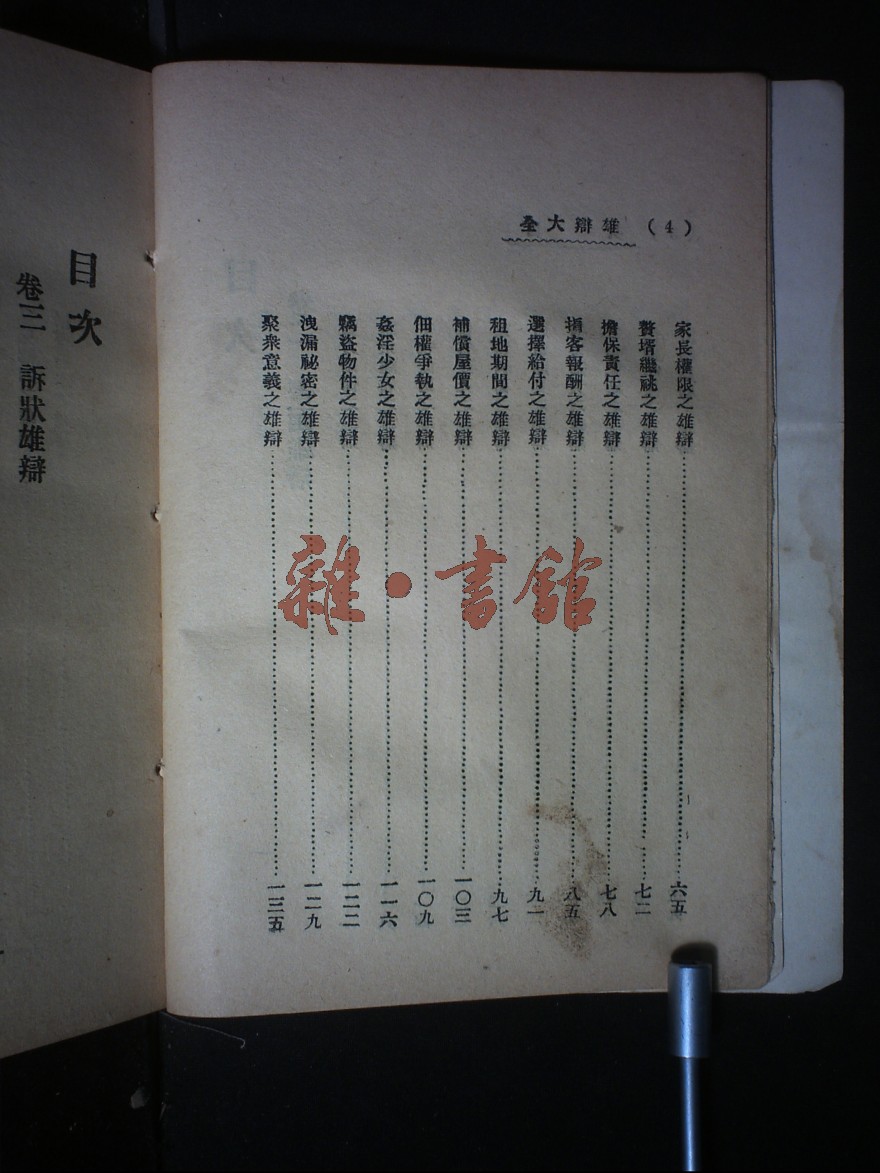 全大辯雄 (4)
家長權限之雄辯……六五
贅壻繼祧之雄辯……七二
擔保責任之雄辯……七八
掮客報酬之雄辯……八五
選擇給付之雄辯……九一
租地期間之雄辯……九七
補償屋價之雄辯……一〇三
佃權爭執之雄辯……一〇九
姦淫少女之雄辯……一一六
竊盜物件之雄辯……一二二
洩漏祕密之雄辯……一二九
聚衆意義之雄辯……一三五
目次
卷三 訴狀雄辯
雜·書館